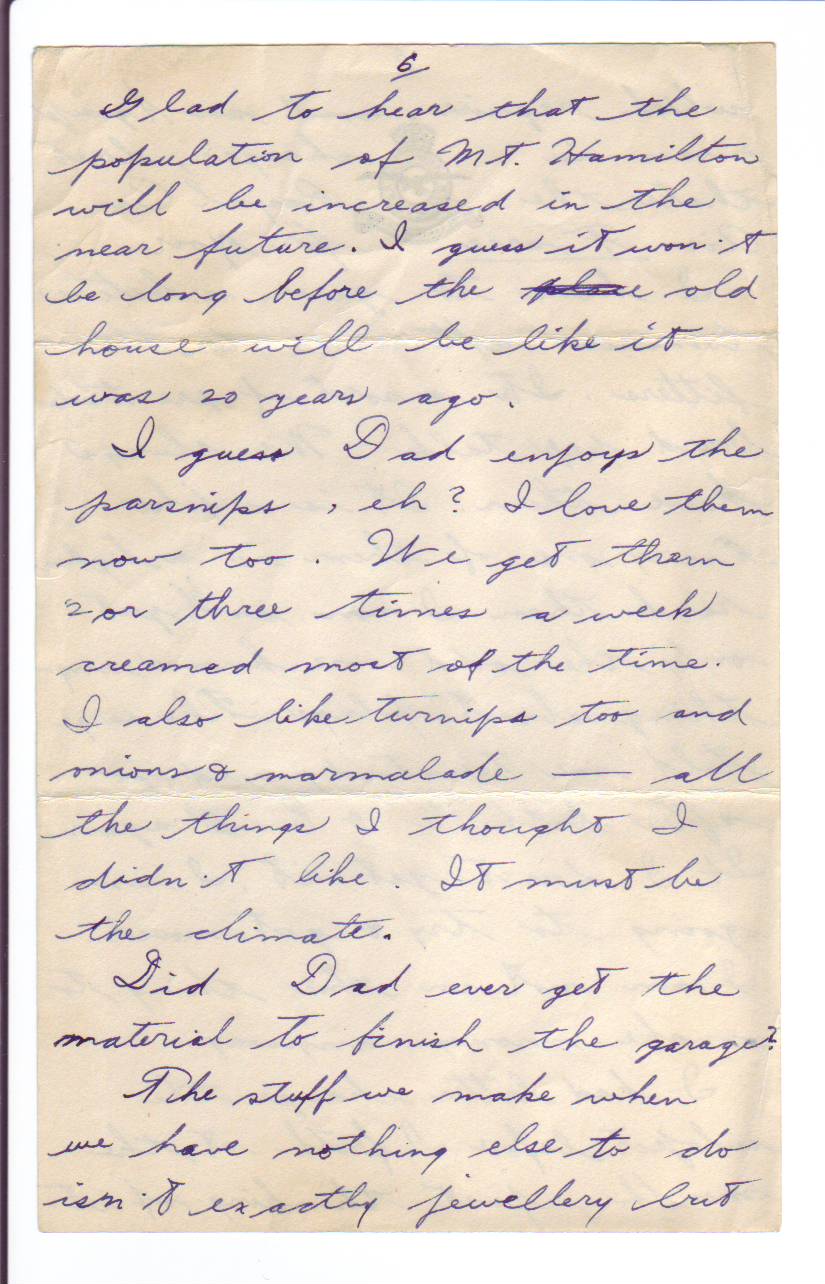 6
Glad to hear that the
population of Mt. Hamilton
will be increased in the
near future. I guess it won't
be long before the place old
house will be like it
was 20 years ago.
I guess Dad enjoys the
parsnips, eh? I love them
now too. We get them
2 or three times a week
creamed most of the time.
I also like turnips too and
onions & marmalade — all
the things I thought I
didn't like. It must be
the climate.
Did Dad ever get the
material to finish the garage?
The stuff we make when
we have nothing else to do
isn't exactly jewellery but